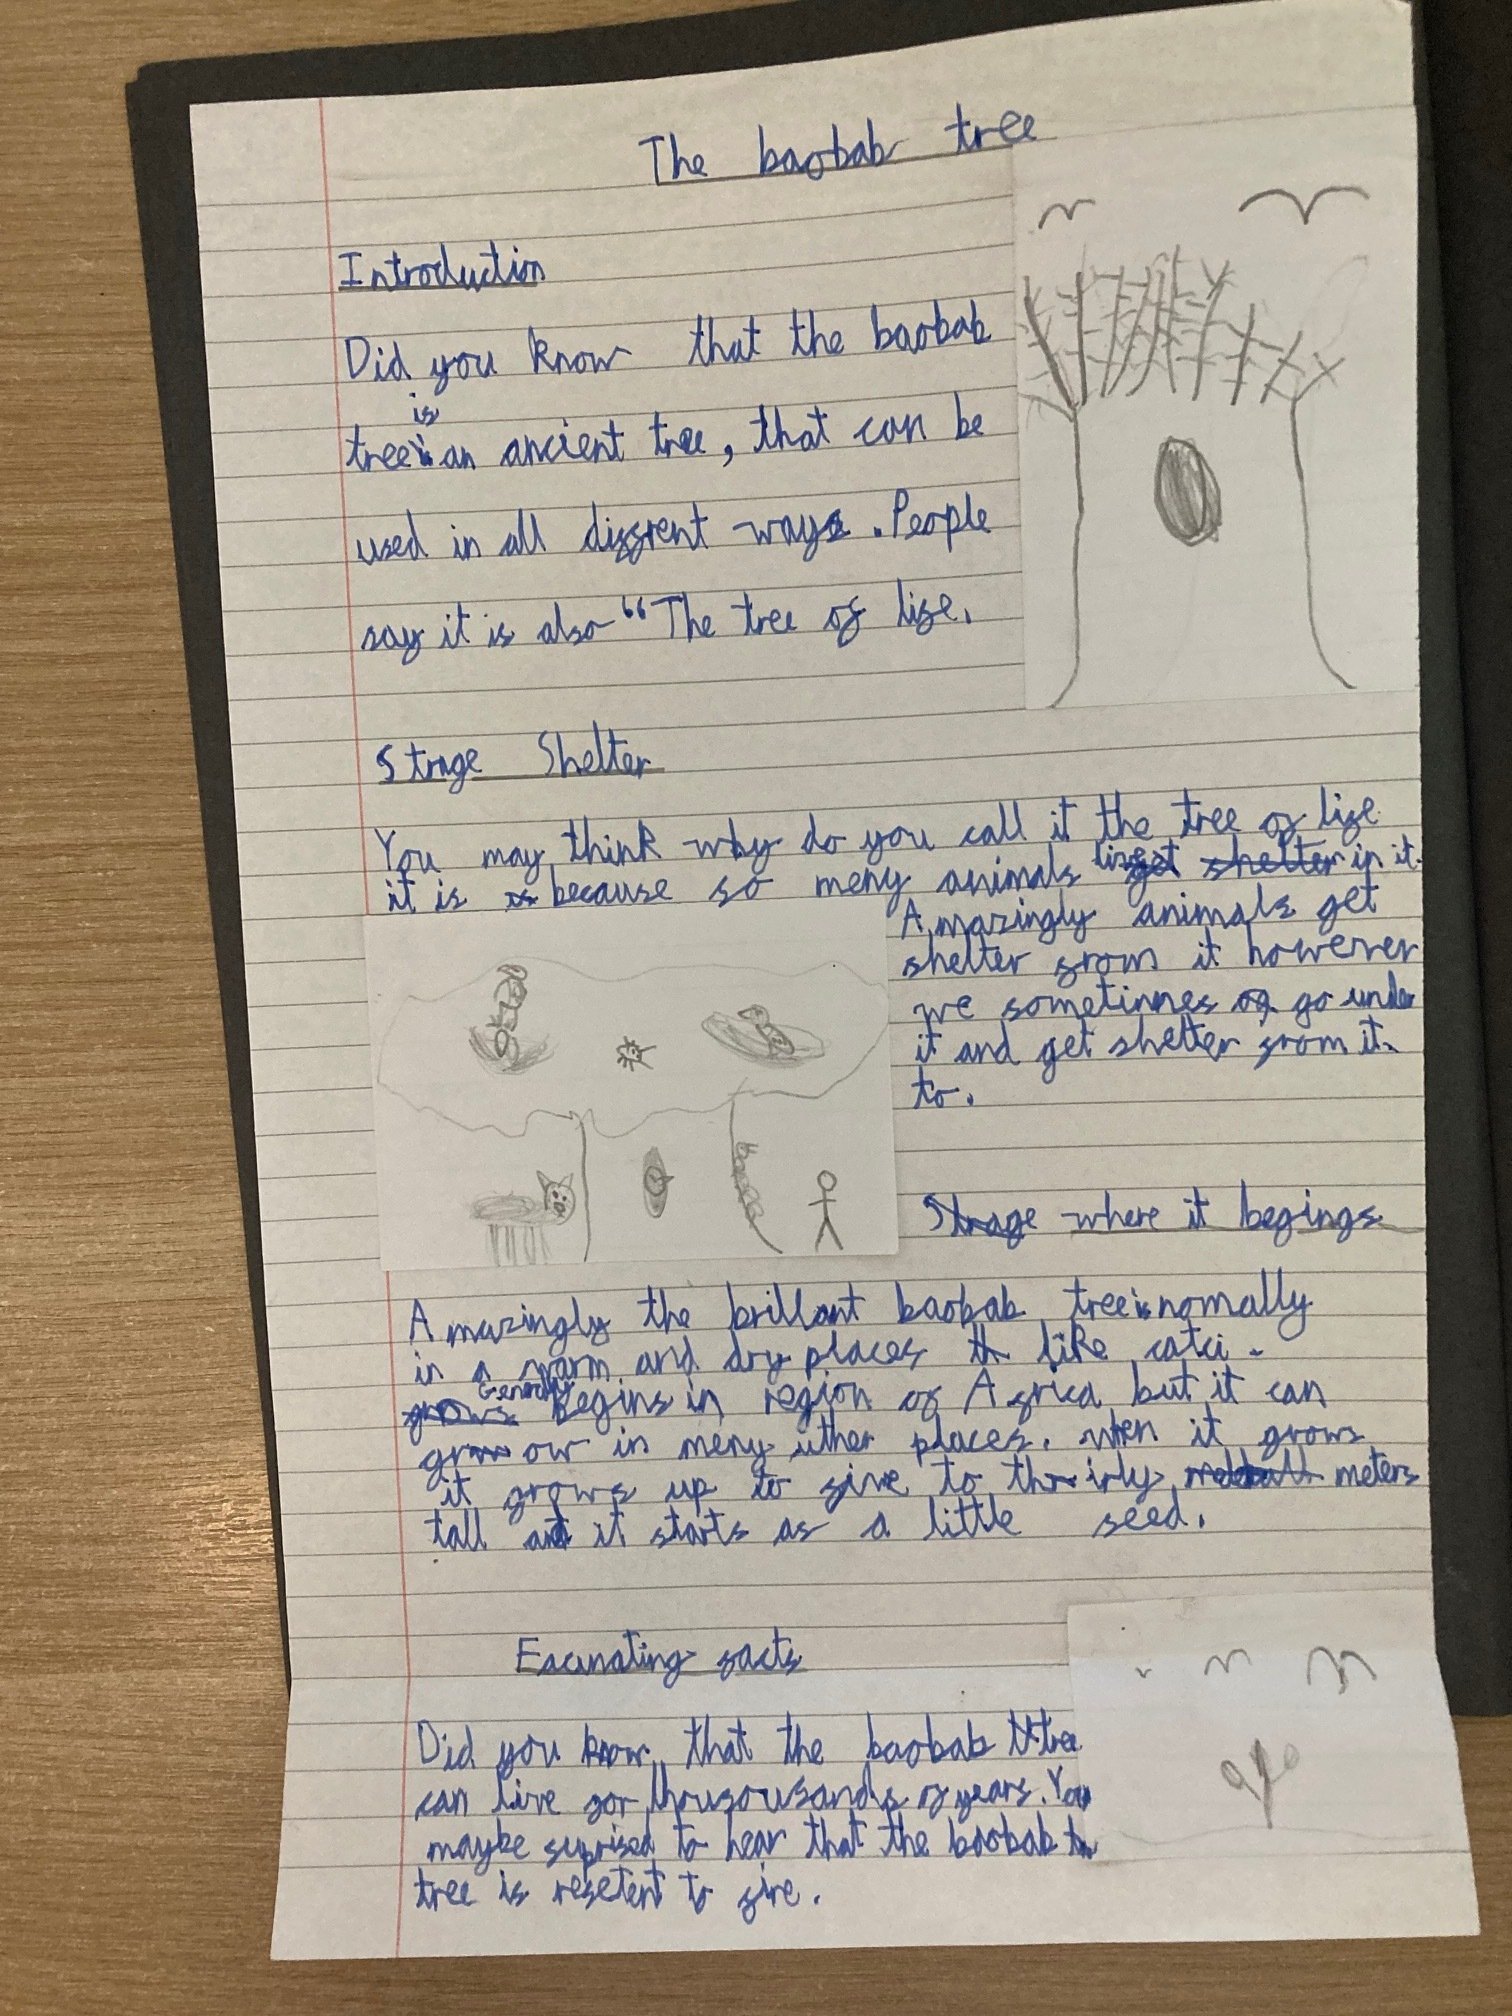 The baobab tree
Introduction
Did you know that the baobab
tree is an ancient tree, that can be
used in all diffrent ways. People
say it is also "The tree of life.
Strage Shelter
You may think why do you call it the tree of life
it is because so meny animals live in it.
Amazingly animals get
shelter from it however
we sometimes go under
it and get shelter from it
to.
where it begings
Amazingly the brillant baobab tree is nomally
in a warm and dry places like catci.
Generally begins in region of Africa but it can
grow in meny uther places. when it grows
it grows up to five to thirty meters
tall and it starts as a little seed.
Facinating facts
Did you know that the baobab tree
can live for thousousands of years. You
maybe suprised to hear that the baobab
tree is resetent to fire.